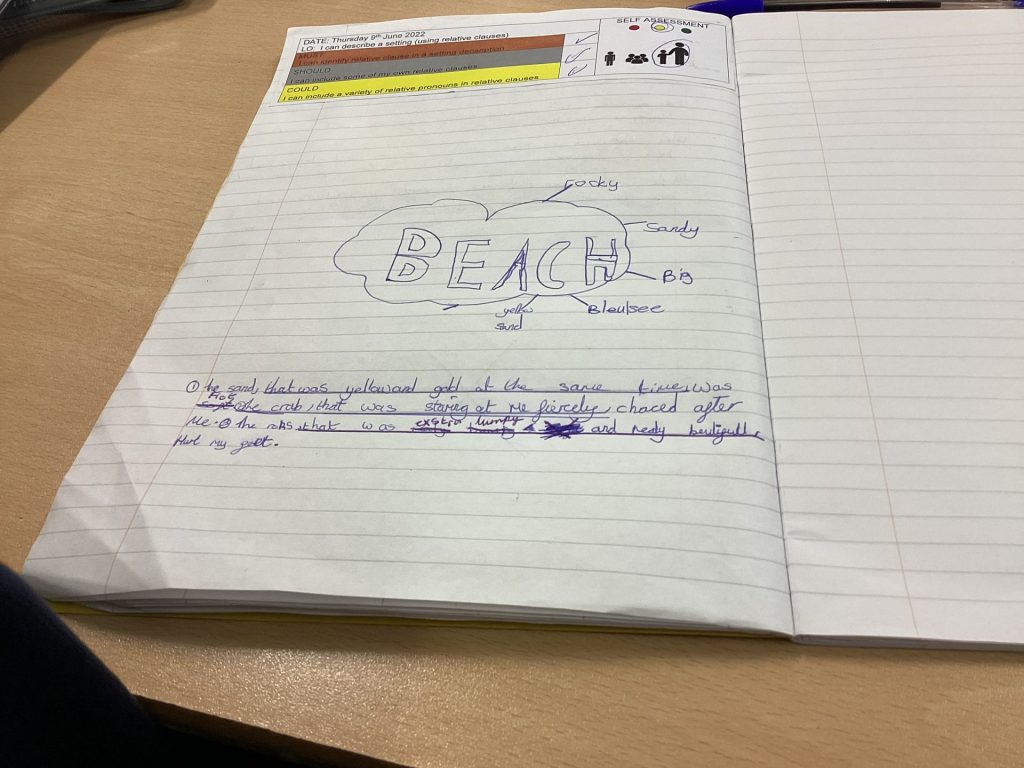 DATE: Thursday 9th June 2022
LO: I can describe a setting (using relative clauses)
MUST
I can identify relative clause in a setting description
SHOULD
I can include some of my own relative clauses
COULD
I can include a variety of relative pronouns in relative clauses
SELF ASSESSMENT
BEACH
rocky
Sandy
Big
Bleu see
yellow
sand
① he sand, that was yellow and gold at the same time, was
Hot ② the crab, that was staring at me fiercely, chaced after
Me. ③ the roks, that was lumpy and realy beutifull,
Hurt my